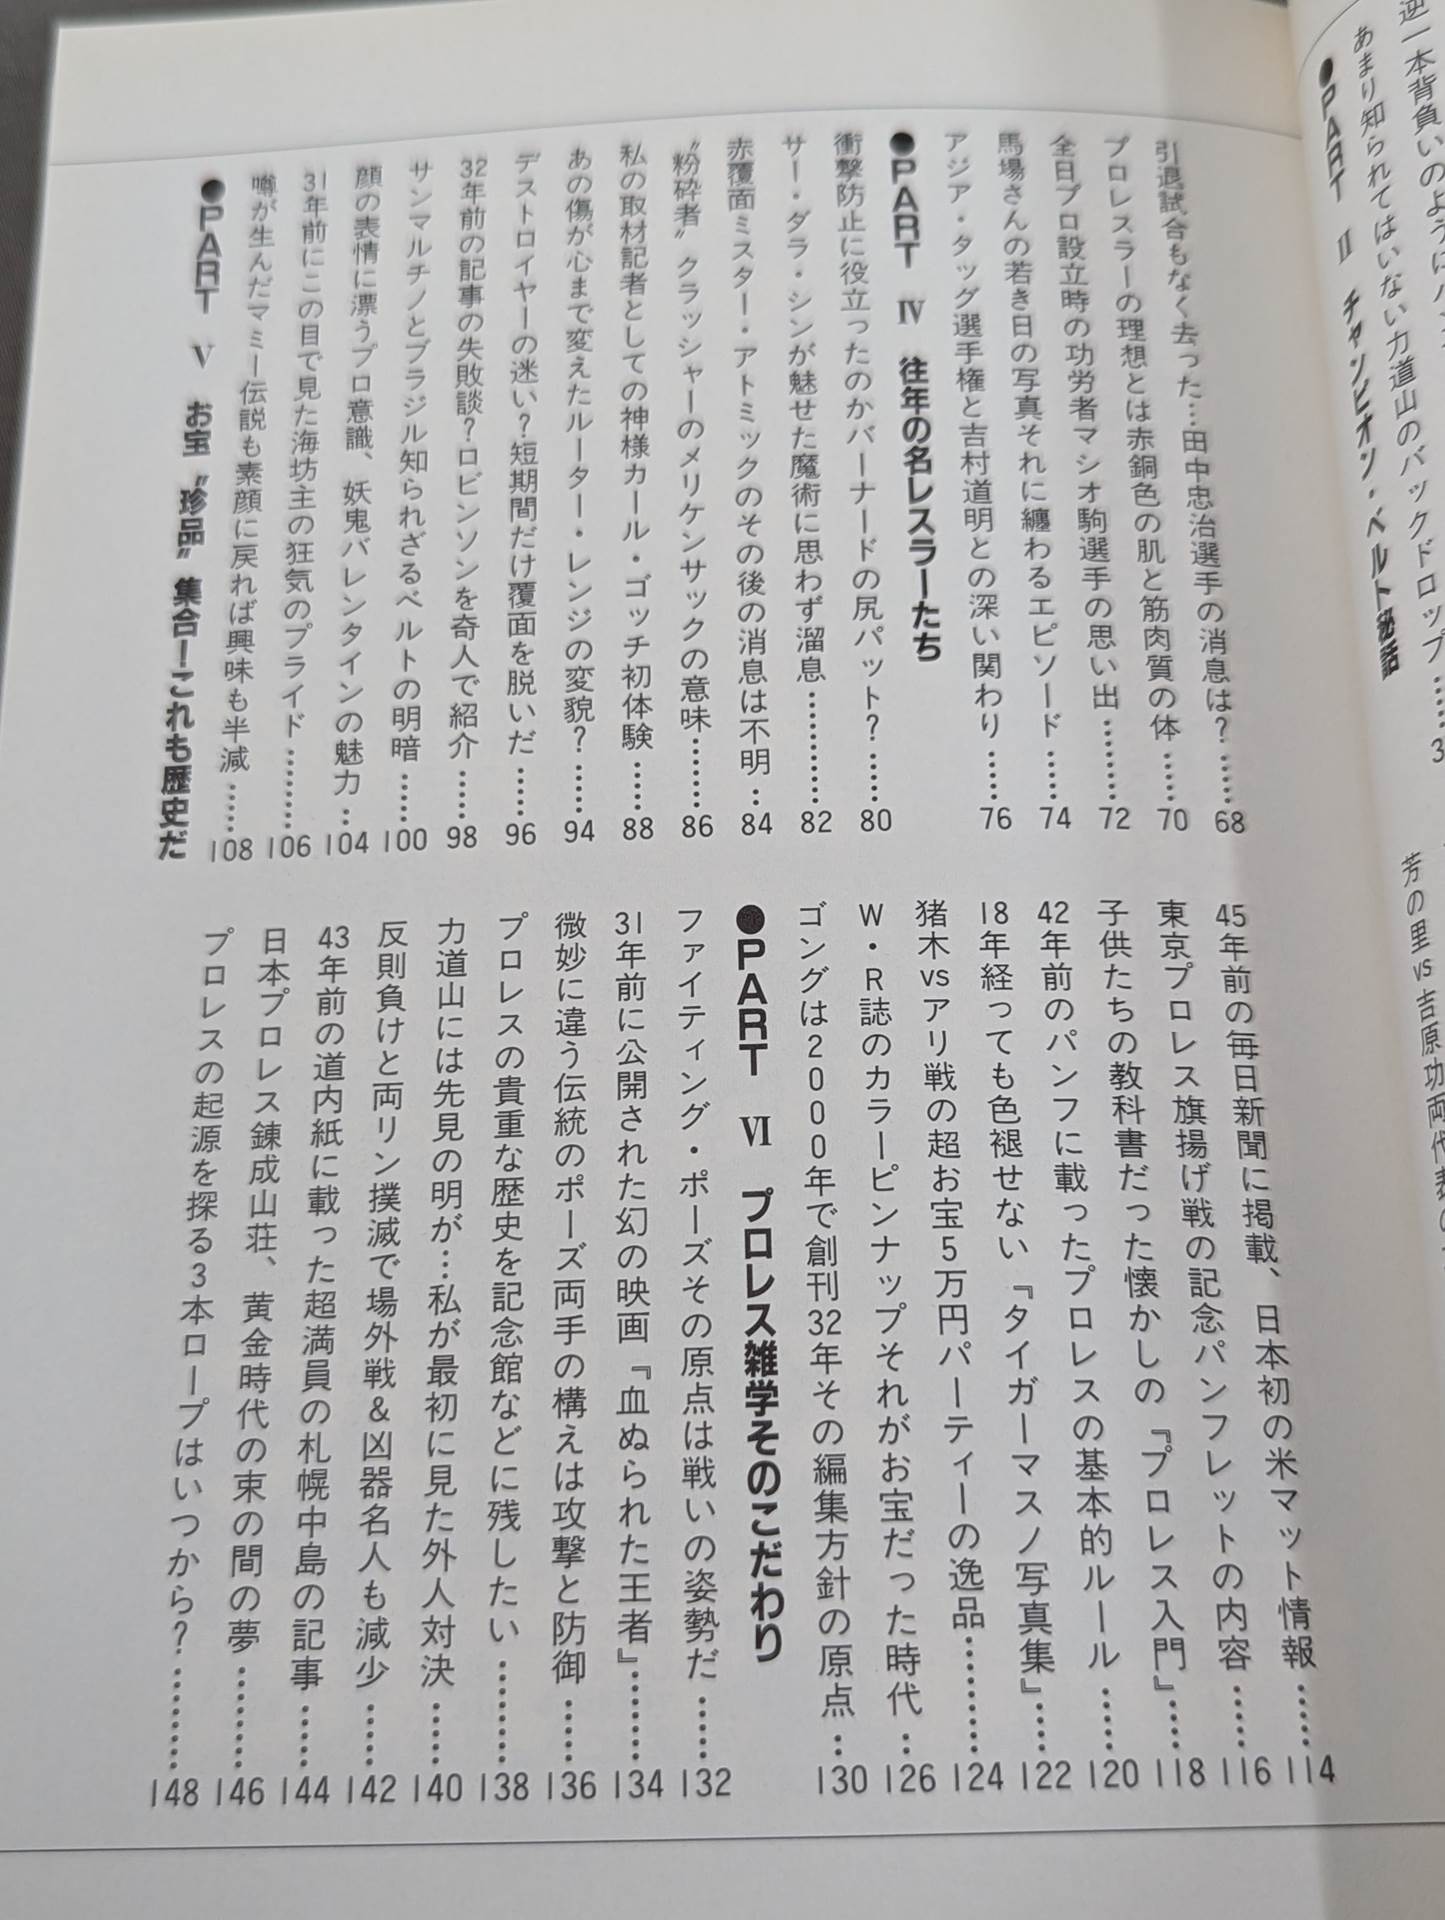 逆一本背負いのように
あまり知られてはいない力道山のバックドロップ……3
●PART Ⅱ チャンピオン・ベルト秘話
芳の里vs吉原功両代表の
引退試合もなく去った…田中忠治選手の消息は？……68
プロレスラーの理想とは赤銅色の肌と筋肉質の体……70
全日プロ設立時の功労者マシオ駒選手の思い出………72
馬場さんの若き日の写真それに纏わるエピソード……74
アジア・タッグ選手権と吉村道明との深い関わり……76
●PART Ⅳ 往年の名レスラーたち
衝撃防止に役立ったのかバーナードの尻パット？……80
サー・ダラ・シンが魅せた魔術に思わず溜息…………82
赤覆面ミスター・アトミックのその後の消息は不明…84
〝粉砕者〟クラッシャーのメリケンサックの意味………86
私の取材記者としての神様カール・ゴッチ初体験……88
あの傷が心まで変えたルーター・レンジの変貌？……94
デストロイヤーの迷い？短期間だけ覆面を脱いだ……96
32年前の記事の失敗談？ロビンソンを奇人で紹介……98
サンマルチノとブラジル知られざるベルトの明暗……100
顔の表情に漂うプロ意識、妖鬼バレンタインの魅力…104
31年前にこの目で見た海坊主の狂気のプライド………106
噂が生んだマミー伝説も素顔に戻れば興味も半減……108
●PART Ⅴ お宝〝珍品〟集合！これも歴史だ
45年前の毎日新聞に掲載、日本初の米マット情報……114
東京プロレス旗揚げ戦の記念パンフレットの内容……116
子供たちの教科書だった懐かしの『プロレス入門』……118
42年前のパンフに載ったプロレスの基本的ルール……120
18年経っても色褪せない『タイガーマスノ写真集』……122
猪木vsアリ戦の超お宝5万円パーティーの逸品…………124
W・R誌のカラーピンナップそれがお宝だった時代…126
ゴングは2000年で創刊32年その編集方針の原点…130
●PART Ⅵ プロレス雑学そのこだわり
ファイティング・ポーズその原点は戦いの姿勢だ……132
31年前に公開された幻の映画『血ぬられた王者』………134
微妙に違う伝統のポーズ両手の構えは攻撃と防御……136
プロレスの貴重な歴史を記念館などに残したい………138
力道山には先見の明が…私が最初に見た外人対決……140
反則負けと両リン撲滅で場外戦＆凶器名人も減少……142
43年前の道内紙に載った超満員の札幌中島の記事……144
日本プロレス錬成山荘、黄金時代の束の間の夢………146
プロレスの起源を探る3本ロープはいつから？…………148